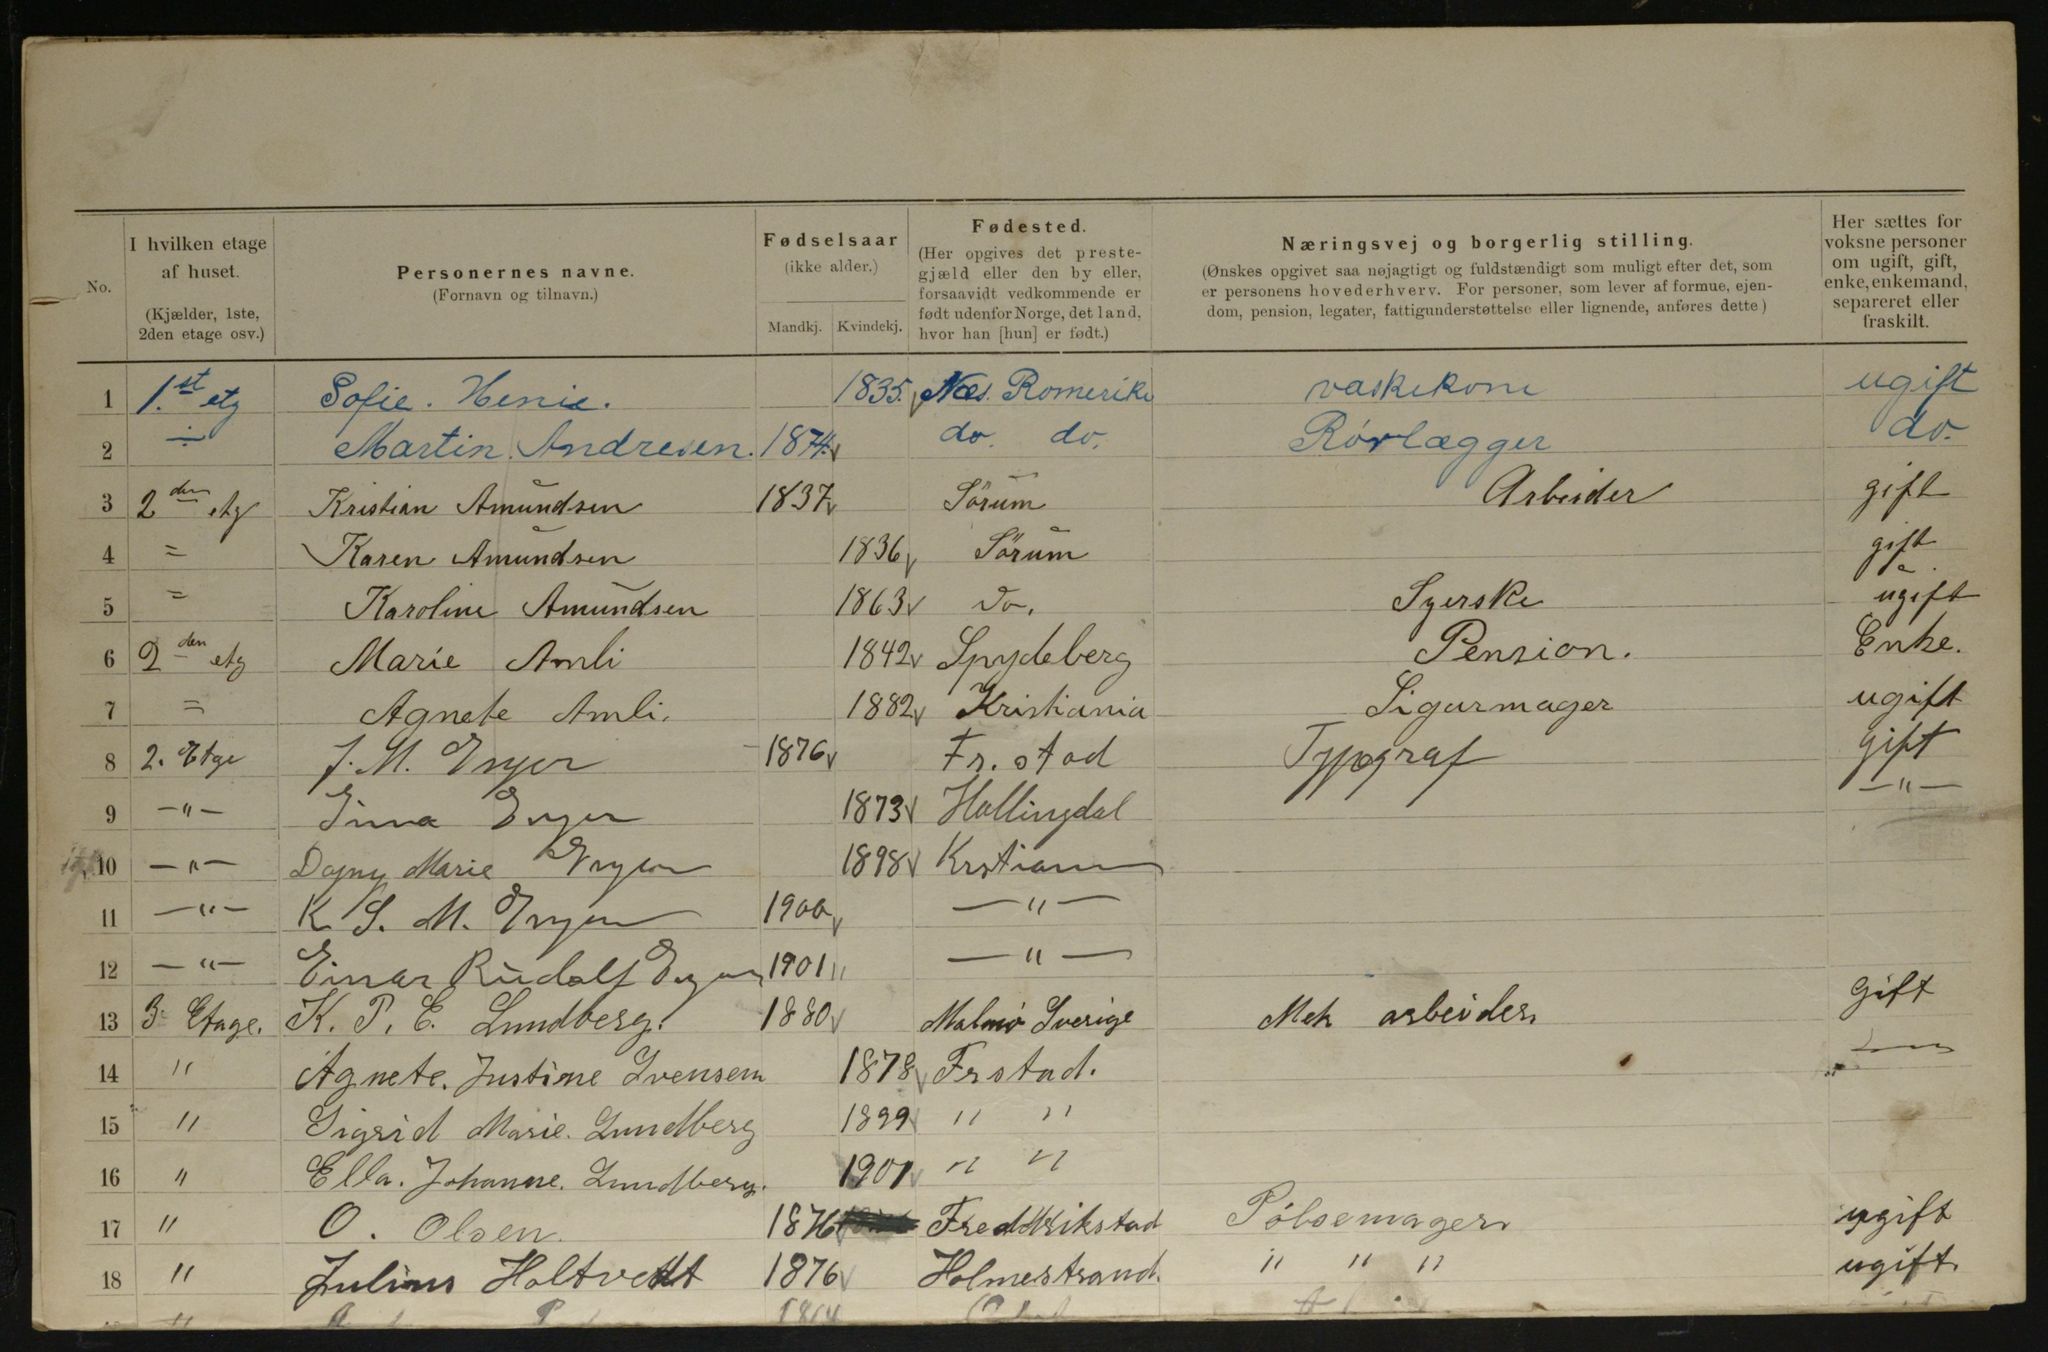 No.
I hvilken etage af huset.
(Kjælder, 1ste, 2den etage osv.)
Personernes navne.
(Fornavn og tilnavn.)
Fødselsaar
(ikke alder.)
Mandkj. Kvindekj.
Fødested.
(Her opgives det preste-
gjæld eller den by eller,
forsaavidt vedkommende er
født udenfor Norge, det land,
hvor han [hun] er født.)
Næringsvej og borgerlig stilling.
(Ønskes opgivet saa nøjagtigt og fuldstændigt som muligt efter det, som
er personens hovederhverv. For personer, som lever af formue, ejen-
dom, pension, legater, fattigunderstøttelse eller lignende, anføres dette)
Her sættes for
voksne personer
om ugift, gift,
enke, enkemand,
separeret eller
fraskilt.
1 1.st etg Sofie. Henie. 1835. Næs. Romerike vaskekone ugift
2 ÷ Martin Andresen. 1874. do. do. Rörlægger do.
3 2den etg Kristian Amundsen 1837 Sörum Arbeider gift
4 = Karen Amundsen 1836 Sörum gift
5 = Karoline Amundsen 1863 do. Syerske ugift
6 2den etg Marie Amli 1842 Spydeberg Pension. Enke.
7 = Agnete Amli. 1882 Kristiania Sigarmager ugift
8 2. Etge J. M. 1876 Fr.stad Typograf gift
9 —"— 1873 Hallingdal —"—
10 —"— Dagny Marie 1898 Krstiania
11 —"— K. S. M. 1900 —"—
12 —"— Einar Rudolf 1901 —"—
13 3. Etage. K. P. E. Lundberg. 1880 Malmö Sverige Mek arbeider Gift
14 " Agnete. Justine Svensen 1878 Frstad.
15 " Sigrid Marie. Lundberg 1899 " "
16 " Ella. Johanne. Lundberg. 1901 " "
17 " O. Olsen. 1876 Fredrikstad Pölsemager ugift
18 " Julius Holtvedt 1876 Holmestrand. " " " ugift.